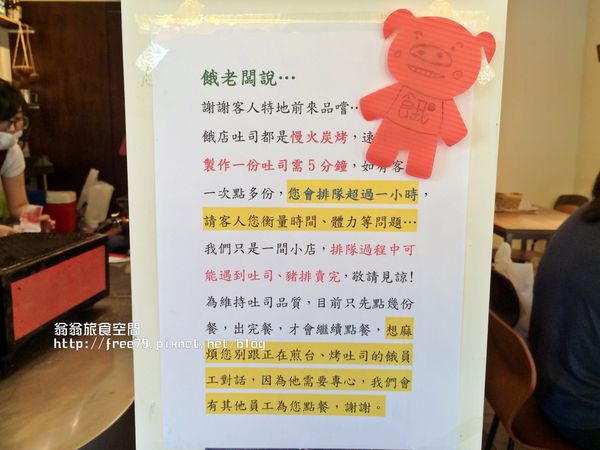 餓老闆說…
謝謝客人特地前來品嚐…
餓店吐司都是慢火炭烤，速
製作一份吐司需5分鐘，如有客
一次點多份，您會排隊超過一小時，
請客人您衡量時間、體力等問題…
我們只是一間小店，排隊過程中可
能遇到吐司、豬排賣完，敬請見諒!
為維持吐司品質，目前只先點幾份
餐，出完餐，才會繼續點餐，想麻
煩您別跟正在煎台、烤吐司的餓員
工對話，因為他需要專心，我們會
有其他員工為您點餐，謝謝。
餓
翁翁旅食空間
http://free79.pixnet.net/blog